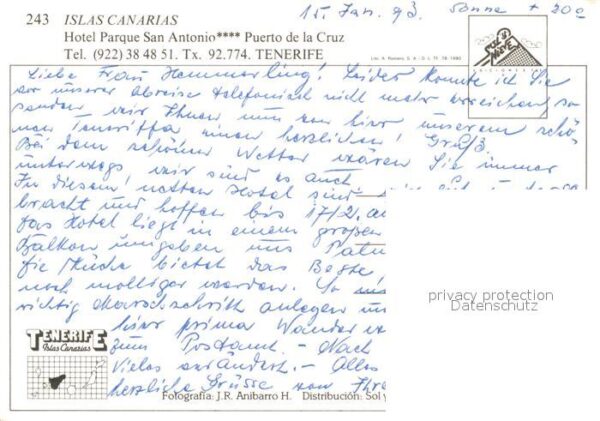 15. Jan. 93. Sonne + 20°
243 ISLAS CANARIAS
Hotel Parque San Antonio**** Puerto de la Cruz
Tel. (922) 38 48 51. Tx. 92.774. TENERIFE
Liebe Frau Hammerling! Leider konnte ich Sie
vor unserer Abreise telefonisch nicht mehr erreichen so
senden wir Ihnen nun von hier unserem schö-
nen Teneriffa einen herzlichen Gruß.
Bei dem schönen Wetter wären Sie immer
unterwegs wir sind es auch
In diesem netten Hotel sind
bracht und hoffen bis 17/2.
Das Hotel liegt in einem großen
Balkon umgeben uns
Die Küche bietet das Beste
noch molliger werden. So
richtig Marschschritt anlegen
hier prima Wander
zum Postamt. - Nach
Vieles verändert. - Alles
herzliche Grüsse von
privacy protection
Datenschutz
TENERIFE
Islas Canarias
Fotografía: J.R. Anibarro H. Distribución: Sol y